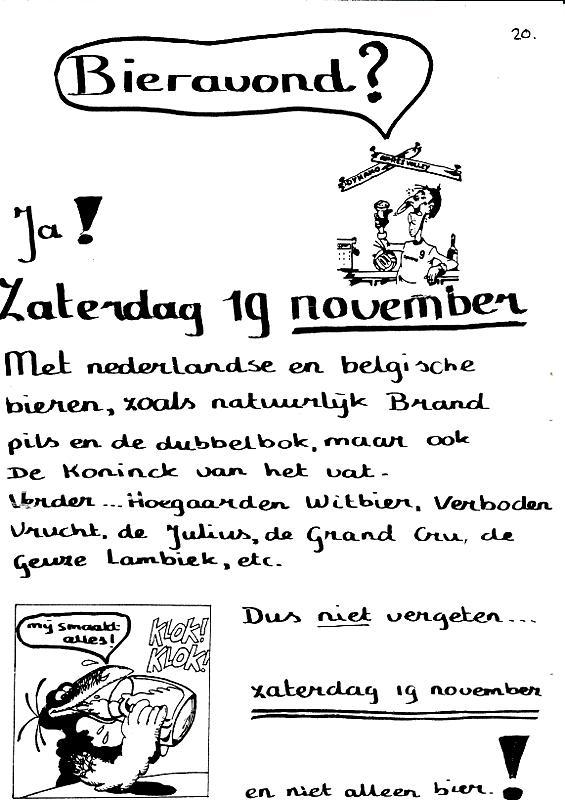 20.
Bieravond?
DYNAMO APRÈS VOLLEY
9
Ja!
Zaterdag 19 november
Met nederlandse en belgische
bieren, zoals natuurlijk Brand
pils en de dubbelbok, maar ook
De Koninck van het vat.
Verder... Hoegaarden Witbier, Verboden
Vrucht, de Julius, de Grand Cru, de
Geuze Lambiek, etc.
mij smaakt
alles!
KLOK!
KLOK!
Dus niet vergeten...
zaterdag 19 november
en niet alleen bier. !